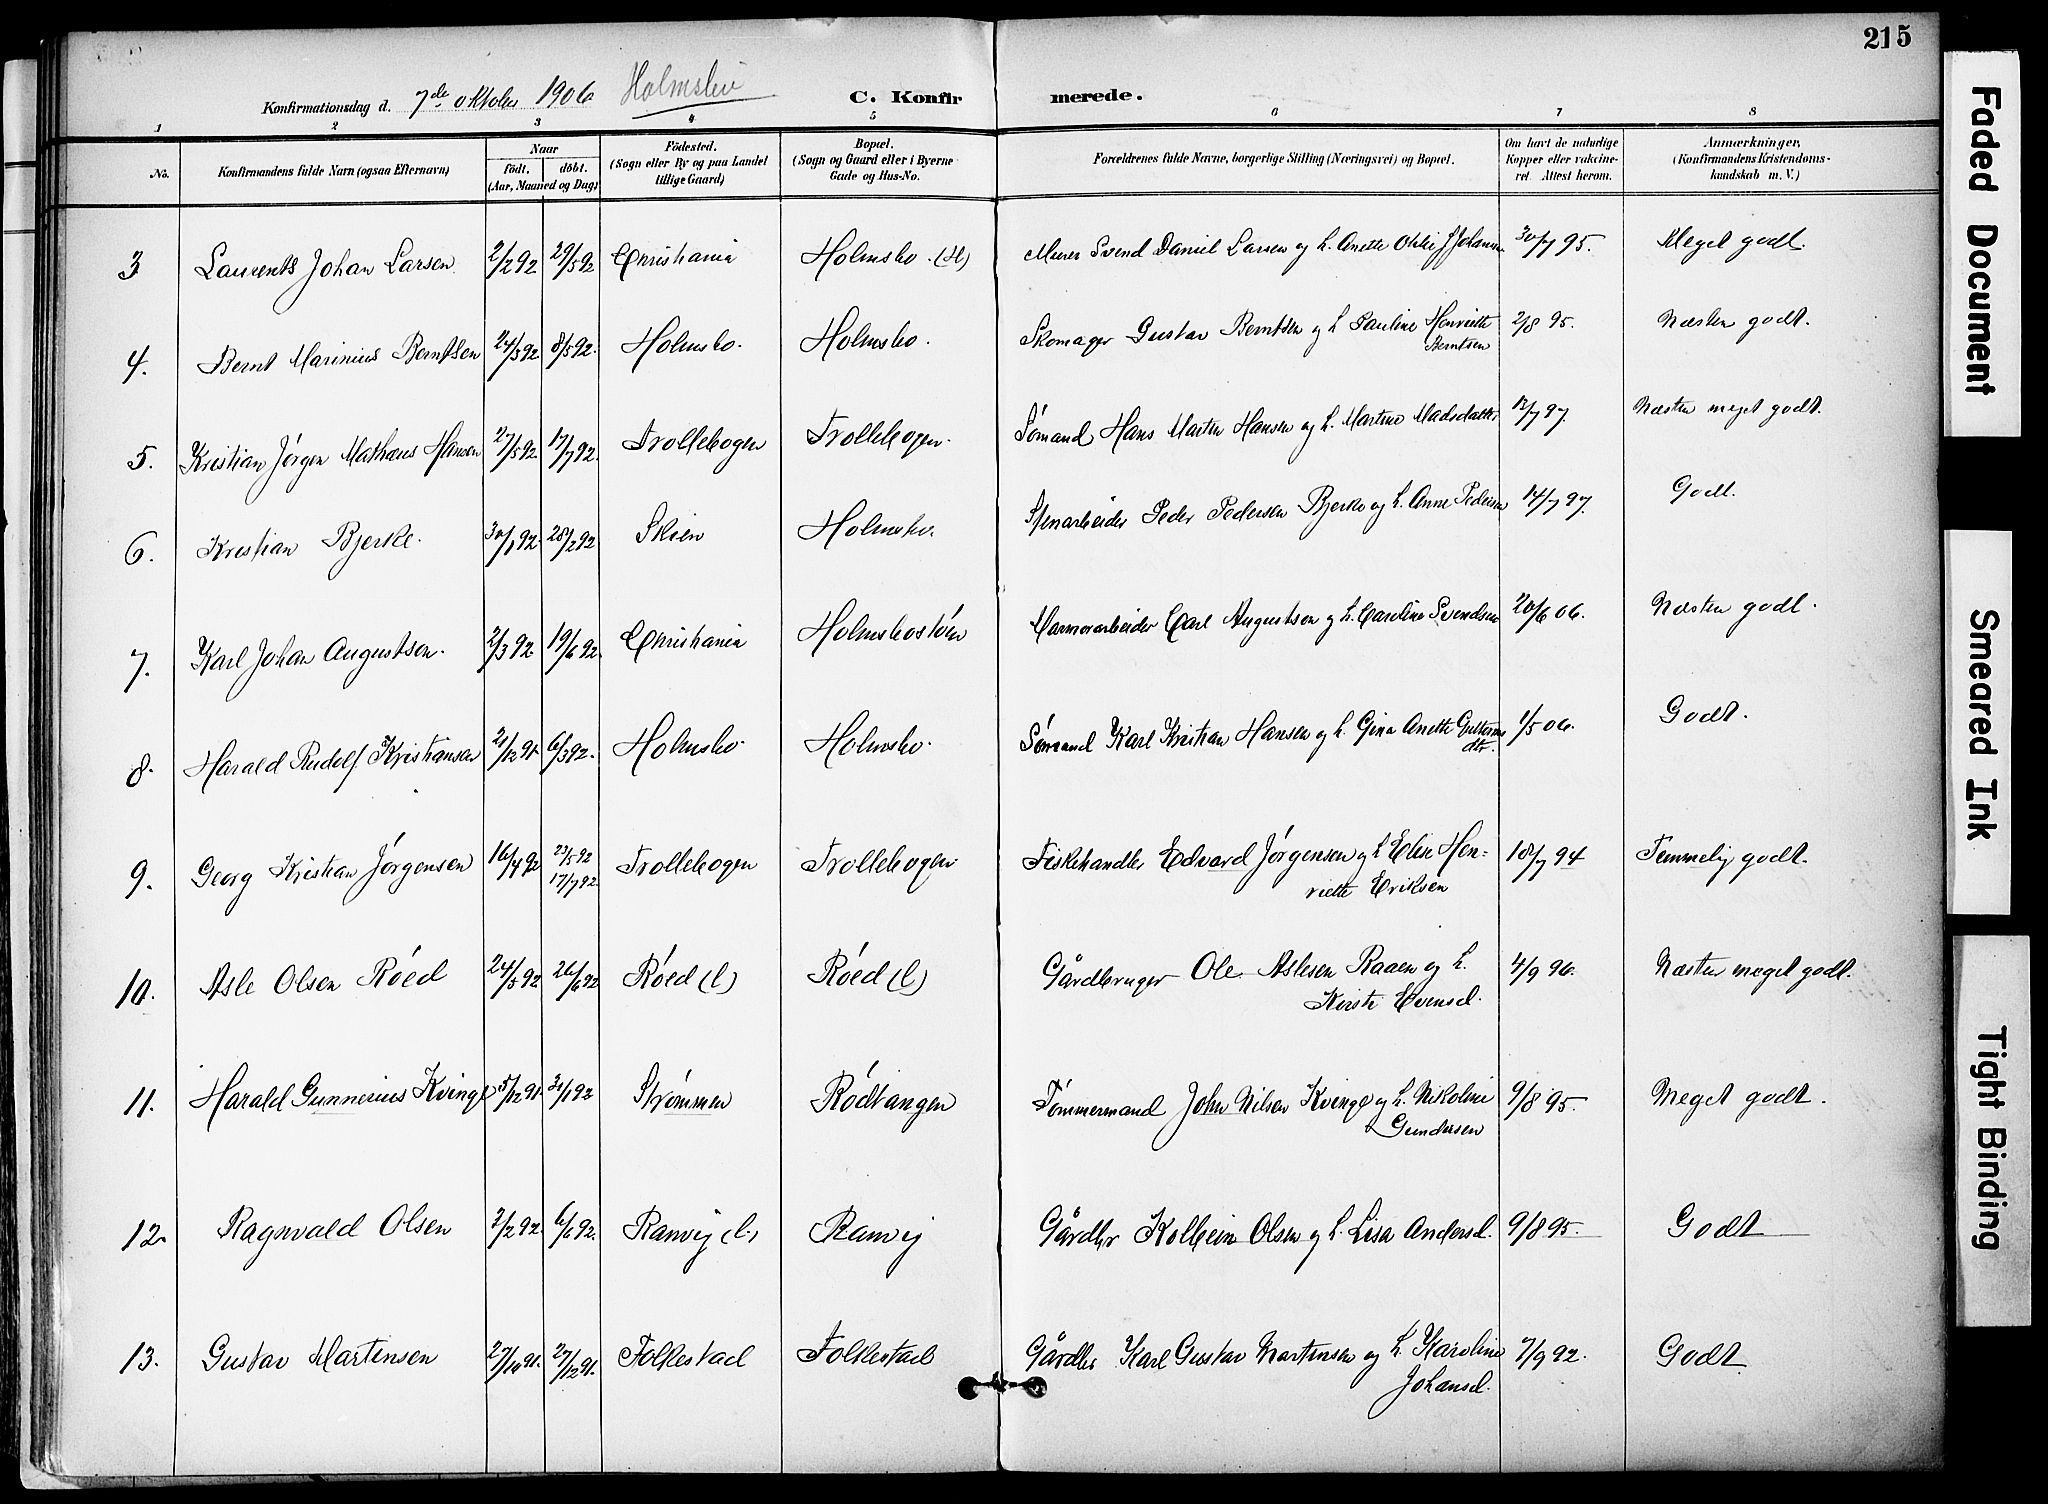 215
Konfirmationsdag d. 7de oktober 1906 Holmsbu C. Konfirmerede.
1 2 3 4 5 6 7 8
No. Konfirmandens fulde Navn (ogsaa Efternavn) Naar födt. döbt. (Aar, Maaned og Dag) Födested. (Sogn eller By og paa Landet tillige Gaard) Bopæl. (Sogn og Gaard eller i Byerne Gade og Hus-No. Forældrenes fulde Navne, borgerlige Stilling (Næringsvei) og Bopæl. Om havt de naturlige Kopper eller vaccineret. Attest herom. Anmærkninger, (Konfirmandens Kristendomskundskab m. V.)
3 Laurents Johan Larsen 2/2 92 29/5 92 Christiania Holmsbo (H) Murer Svend Daniel Larsen og h. Anette Johansen 30/7 95. Meget godt
4. Bernt Marinius Berntsen 24/3 92 8/5 92. Holmsbo. Holmsbo. Skomager Gustav Berntsen og h. Pauline Henriette Berntsen 2/8 95. Næsten godt.
5. Kristian Jórgen Mathæus Hansen 27/5 92 17/7 92. Trollebogen Trollebogen. Sómand Hans Martin Hansen og h. Martine Madsdatter 12/7 97. Næsten meget godt.
6. Kristian Bjerke. 30/1 92. 28/2 92 Skien Holmsbo. Stenarbeider Peder Pedersen Bjerke og h. Anne Pedersen 14/7 97. Godt.
7. Karl Johan Augustsen. 2/3 92 19/6 92. Christiania Holmsbostóen Marmorarbeider Carl Augustsen og h. Caroline Svendsen 20/6 06. Næsten godt.
8. Harald Rudolf Kristiansen 21/12 91. 6/3 92. Holmsbo. Holmsbo. Sómand Karl Kristian Hansen og h. Gina Anette Guttormsdtr. 1/5 06. Godt.
9. Georg Kristian Jórgensen 16/4 92 23/5 92 17/7 92. Trollebogen Trollebogen Fiskehandler Edvard Jórgensen og h Elise Henriette Eriksen 18/7 94 Temmelig godt.
10. Asle Olsen Róed 24/5 92 26/6 92 Róed (l) Róed (l) Gårdbruger Ole Aslesen Raaen og h. Kirsti Evensd. 4/9 96. Næsten meget godt.
11. Harald Gunnerius Kvinge 5/12 91. 31/1 92 Strómmen Ródtangen Tómmermand John Nilsen Kvinge og h. Nikoline Gundersen 9/8 95. Meget godt.
12. Ragnvald Olsen 2/2 92. 6/6 92. Ramvig (l.) Ramvig Gårdbr Kolbein Olsen og h. Lisa Andersd. 9/8 95. Godt
13. Gustav Martinsen 27/10 91. 27/12 91. Folkestad Folkestad Gårdbr Karl Gustav Martinsen og h. Karoline Johansd. 7/9 92. Godt
Faded Document
Smeared Ink
Tight Binding